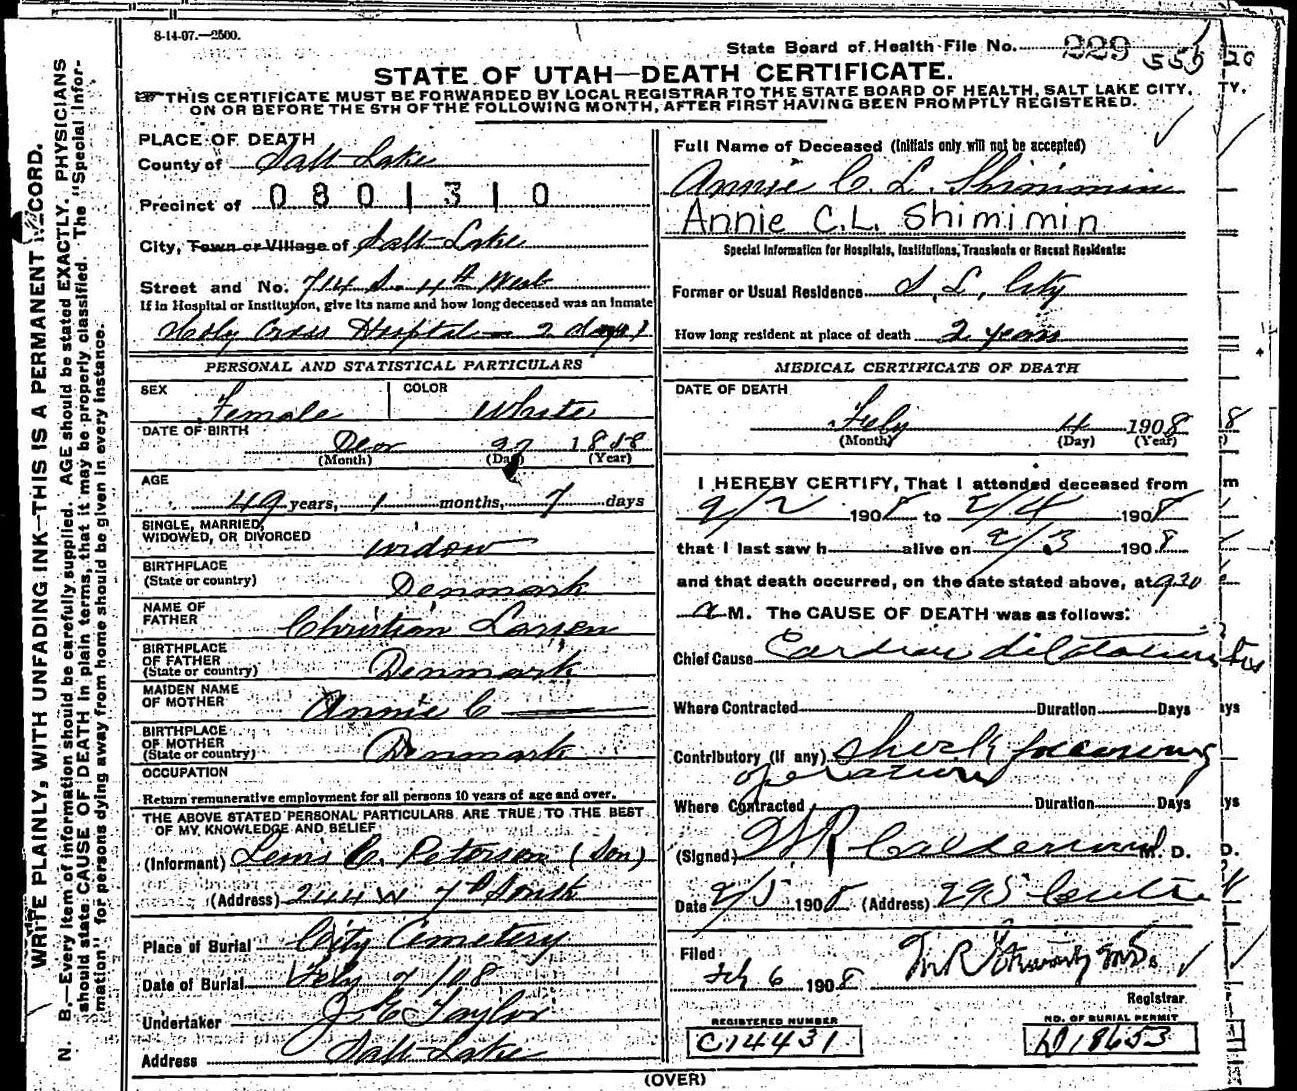 8-14-07.—2500.
State Board of Health File No. 229 555
STATE OF UTAH—DEATH CERTIFICATE.
THIS CERTIFICATE MUST BE FORWARDED BY LOCAL REGISTRAR TO THE STATE BOARD OF HEALTH, SALT LAKE CITY,
ON OR BEFORE THE 5TH OF THE FOLLOWING MONTH, AFTER FIRST HAVING BEEN PROMPTLY REGISTERED.
WRITE PLAINLY, WITH UNFADING INK—THIS IS A PERMANENT RECORD.
N. B.—Every item of information should be carefully supplied. AGE should be stated EXACTLY. PHYSICIANS
should state CAUSE OF DEATH in plain terms, that it may be properly classified. The "Special Infor-
mation" for persons dying away from home should be given in every instance.
PLACE OF DEATH
County of Salt Lake
Precinct of 0801310
City, Town or Village of Salt Lake
Street and No. 714 S. 4th West
If in Hospital or Institution, give its name and how long deceased was an inmate
Holy Cross Hospital — 2 days
PERSONAL AND STATISTICAL PARTICULARS
SEX Female COLOR White
DATE OF BIRTH
Decr 27 1858
(Month) (Day) (Year)
AGE
49 years, 1 months, 7 days
SINGLE, MARRIED,
WIDOWED, OR DIVORCED widow
BIRTHPLACE
(State or country) Denmark
NAME OF
FATHER Christian Larsen
BIRTHPLACE
OF FATHER
(State or country) Denmark
MAIDEN NAME
OF MOTHER Annie C —
BIRTHPLACE
OF MOTHER
(State or country) Denmark
OCCUPATION
Return remunerative employment for all persons 10 years of age and over.
THE ABOVE STATED PERSONAL PARTICULARS ARE TRUE TO THE BEST
OF MY KNOWLEDGE AND BELIEF
(Informant) Lewis C. Peterson (Son)
(Address) 244 W 7th South
Place of Burial City Cemetery
Date of Burial Feby 7 /08
Undertaker J E Taylor
Address Salt Lake
Full Name of Deceased (Initials only will not be accepted)
Annie C. L. Shimmin
Annie C.L. Shimimin
Special Information for Hospitals, Institutions, Transients or Recent Residents:
Former or Usual Residence S. L. City
How long resident at place of death 2 years
MEDICAL CERTIFICATE OF DEATH
DATE OF DEATH
Feby 4 1908
(Month) (Day) (Year)
I HEREBY CERTIFY, That I attended deceased from
2/2 1908 to 2/4 1908
that I last saw h alive on 2/3 1908
and that death occurred, on the date stated above, at 9 30
a M. The CAUSE OF DEATH was as follows:
Chief Cause Cardiac dilatation
Where Contracted Duration Days
Contributory (if any) shock following
operation
Where Contracted Duration Days
(Signed) Calderwood M. D.
Date 2/5 1908 (Address) 295
Filed
Feb 6 1908
Registrar
REGISTERED NUMBER
C14431
NO. OF BURIAL PERMIT
D18653
(OVER)